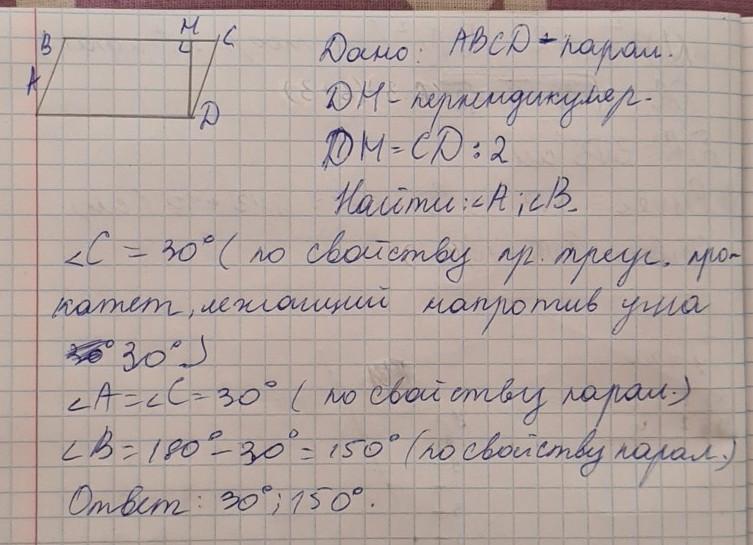 B M C
A D
Дано: ABCD - парал.
DM - перпендикуляр.
DM = CD : 2
Найти: ∠A; ∠B.
∠C = 30° (по свойству пр. треуг. про
катет, лежащий напротив угла
30°)
∠A = ∠C = 30° (по свойству парал.)
∠B = 180° - 30° = 150° (по свойству парал.)
Ответ: 30°; 150°.